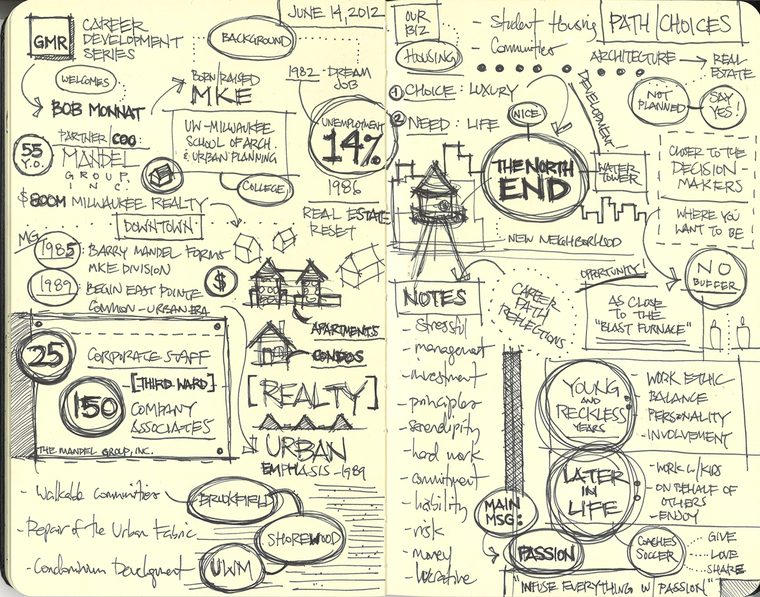 JUNE 14, 2012
GMR
CAREER
DEVELOPMENT
SERIES
BACKGROUND
WELCOMES
BOB MONNAT
BORN/RAISED
MKE
1982 - DREAM
JOB
UNEMPLOYMENT
14%
55
Y.O.
PARTNER/COO:
MANDEL
GROUP,
INC.
UW-MILWAUKEE
SCHOOL OF ARCH.
& URBAN PLANNING
COLLEGE
1986
REAL ESTATE
RESET
$800M MILWAUKEE REALTY
DOWNTOWN
MG
1985: BARRY MANDEL FORMS
MKE DIVISION
1989: BEGIN EAST POINTE
COMMON - URBAN ERA
$
APARTMENTS
CONDOS
25
CORPORATE STAFF
[THIRD WARD]
150
COMPANY
ASSOCIATES
THE MANDEL GROUP, INC.
[REALTY]
URBAN
EMPHASIS - 1989
- Walkable Communities
BROOKFIELD
- Repair of the Urban Fabric
SHOREWOOD
- Condominium Development
UWM
OUR
BIZ
- Student Housing
- Communities
HOUSING
PATH CHOICES
ARCHITECTURE
REAL
ESTATE
1 CHOICE: LUXURY
2 NEED: LIFE
NICE
DEVELOPMENT
NOT
PLANNED
SAY
YES!
THE NORTH
END
WATER
TOWER
CLOSER TO THE
DECISION-
MAKERS
WHERE YOU
WANT TO BE
NEW NEIGHBORHOOD
NO
BUFFER
OPPORTUNITY!
AS CLOSE
TO THE
"BLAST FURNACE"
CAREER
PATH
REFLECTIONS
NOTES
- stressful
- management
- investment
- principles
- serendipity
- hard work
- commitment
- liability
- risk
- money
- lucrative
YOUNG
AND
RECKLESS
YEARS
- WORK ETHIC
- BALANCE
- PERSONALITY
- INVOLVEMENT
LATER
IN
LIFE
- WORK W/KIDS
- ON BEHALF OF
OTHERS
- ENJOY
MAIN
MSG:
PASSION
COACHES
SOCCER
GIVE
LOVE
SHARE
"INFUSE EVERYTHING W/ PASSION"